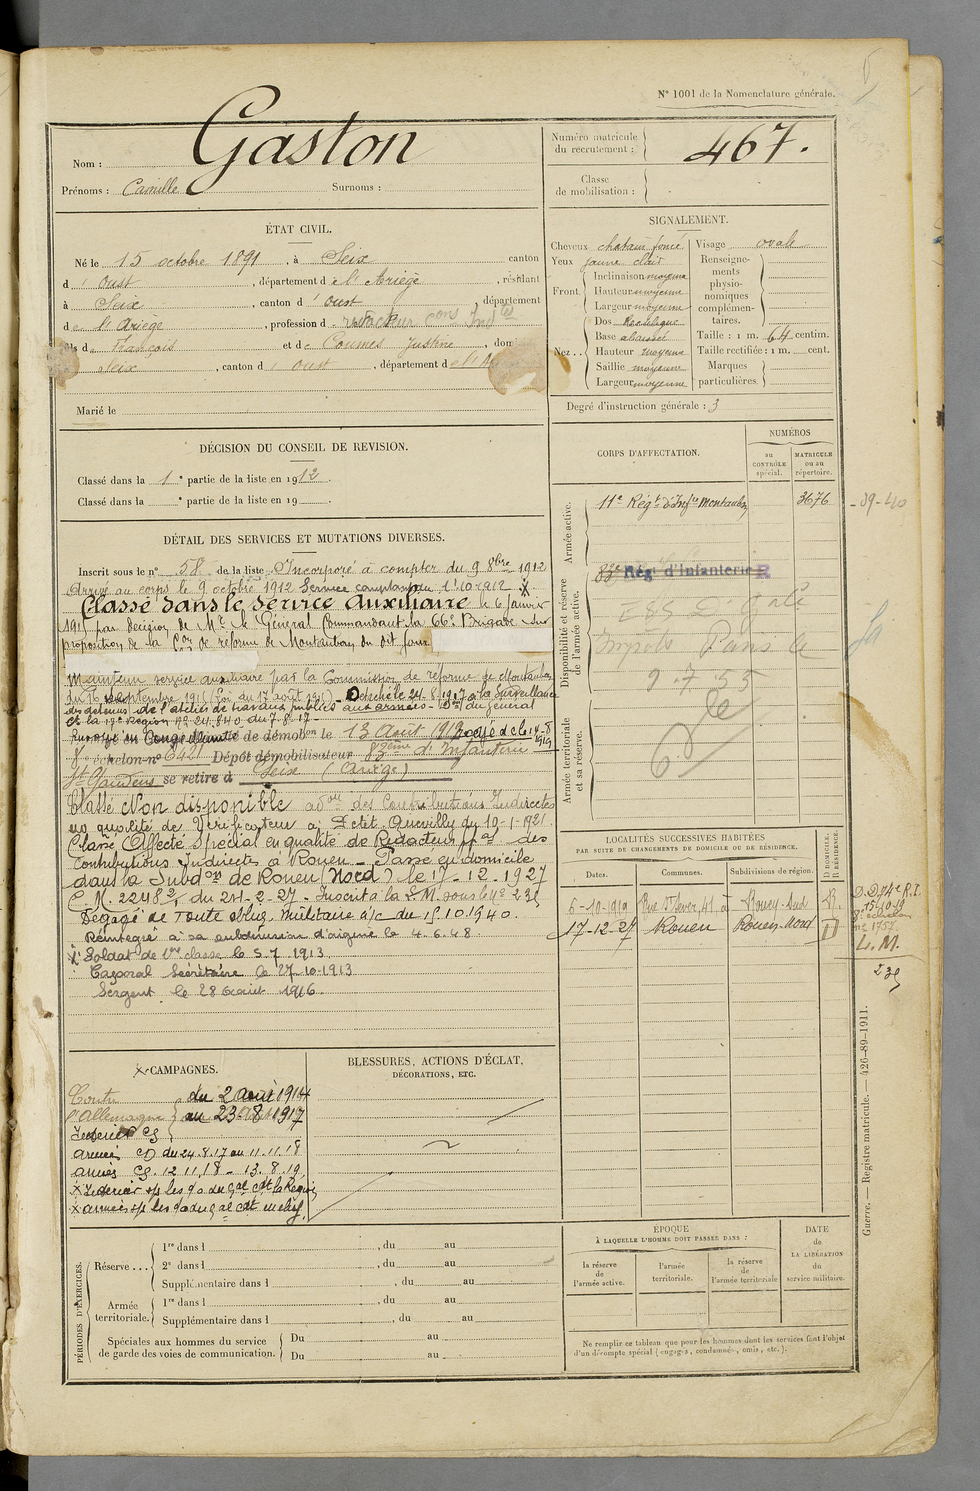 N° 1001 de la Nomenclature générale.
Nom : Gaston
Prénoms : Camille Surnoms :
Numéro matricule du recrutement : 467.
Classe de mobilisation :
ÉTAT CIVIL.
Né le 15 octobre 1891, à Seix canton
d'Oust, département de l'Ariège, résidant
à Seix, canton d'Oust, département
de l'Ariège, profession de rédacteur Cons Indtes
fils de François et de Coumes Justine, domi
Seix, canton d'Oust, département de l'A
Marié le
SIGNALEMENT.
Cheveux chatain foncé
Yeux jaune clair
Front. Inclinaison moyenne
Hauteur moyenne
Largeur moyenne
Nez.. Dos Rectiligne
Base abaissée
Hauteur moyenne
Saillie moyenne
Largeur moyenne
Visage ovale
Renseignements physionomiques complémentaires.
Taille : 1 m. 64 centim.
Taille rectifiée : 1 m. cent.
Marques particulières.
Degré d'instruction générale : 3
DÉCISION DU CONSEIL DE REVISION.
Classé dans la 1e partie de la liste en 1912.
Classé dans la e partie de la liste en 19 .
CORPS D'AFFECTATION.
NUMÉROS
au CONTRÔLE spécial.
MATRICULE ou au répertoire.
Armée active.
11e Régt d'Infie Montauban 3676
- 39-40
Disponibilité et réserve de l'armée active.
83e Régt d'Infanterie R
Impôts Paris
9.7.55
Armée territoriale et sa réserve.
DÉTAIL DES SERVICES ET MUTATIONS DIVERSES.
Inscrit sous le n° 58 de la liste Incorporé à compter du 9 8bre 1912
Arrivé au corps le 9 octobre 1912 Service comptant du 1.10.1912. X
Classé dans le service Auxiliaire le 6 Janvier
191 par décision de Mr le Général Commandant la 66e Brigade sur
proposition de la Con de réforme de Montauban du dit jour
Maintenu service auxiliaire par la Commission de réforme de Montauban
du 16 septembre 191 (Loi du 17 août 1915) Détaché le 24-8-1917 à la surveillance
des détenus de l'atelier de travaux publics aux armées - Don du général
Ct la 17e Région N° 24.840 du 7.8.17-
en Congé illimité de démobon le 13 Août 1919
8e échelon n° 642 Dépôt démobilisateur 83ème d'Infanterie
St Gaudens se retire à Seix (Ariège)
Classé Non disponible adon des Contributions Indirectes
en qualité de Vérificateur à Petit Quevilly du 10-1-1921.
Classé Affecté Spécial en qualité de Rédacteur des
Contributions Indirectes à Rouen - Passe en domicile
dans la Subdon de Rouen (Nord) le 17-12-1927
C.M. 2248 du 24-2-27 - Inscrit à la L.M. sous le N° 239
Dégagé de toute oblig. militaire a/c du 15.10.1940.
Réintégré à sa subdivision d'origine le 4.6.48.
X Soldat de 1re classe le 5-7.1913.
Caporal Secrétaire le 27-10-1913
Sergent le 28 août 1916.
LOCALITÉS SUCCESSIVES HABITÉES
PAR SUITE DE CHANGEMENTS DE DOMICILE OU DE RÉSIDENCE.
Dates. Communes. Subdivisions de région. D DOMICILE. R RÉSIDENCE.
6-10-1919 Rue St Sever, 41 à Rouen-Sud R.
17-12-27 Rouen Rouen-Nord D
L.M.
239
Guerre. — Registre matricule. — 426-89-1911.
X CAMPAGNES.
Contre l'Allemagne du 2 août 1914
au 23-8-1917
Intérieur CS
Armées CD du 24.8.17 au 11.11.18
armées CS. 12.11.18 - 13.8.19
BLESSURES, ACTIONS D'ÉCLAT,
DÉCORATIONS, ETC.
PÉRIODES D'EXERCICES.
Réserve... 1re dans l , du au
2e dans l , du au
Supplémentaire dans l , du au
Armée territoriale. 1re dans l , du au
Supplémentaire dans l , du au
Spéciales aux hommes du service
de garde des voies de communication. Du au
Du au
ÉPOQUE
À LAQUELLE L'HOMME DOIT PASSER DANS :
la réserve de l'armée active.
l'armée territoriale.
la réserve de l'armée territoriale
DATE de LA LIBÉRATION du service militaire.
Ne remplir ce tableau que pour les hommes dont les services font l'objet
d'un décompte spécial (engagés, condamnés, omis, etc.).